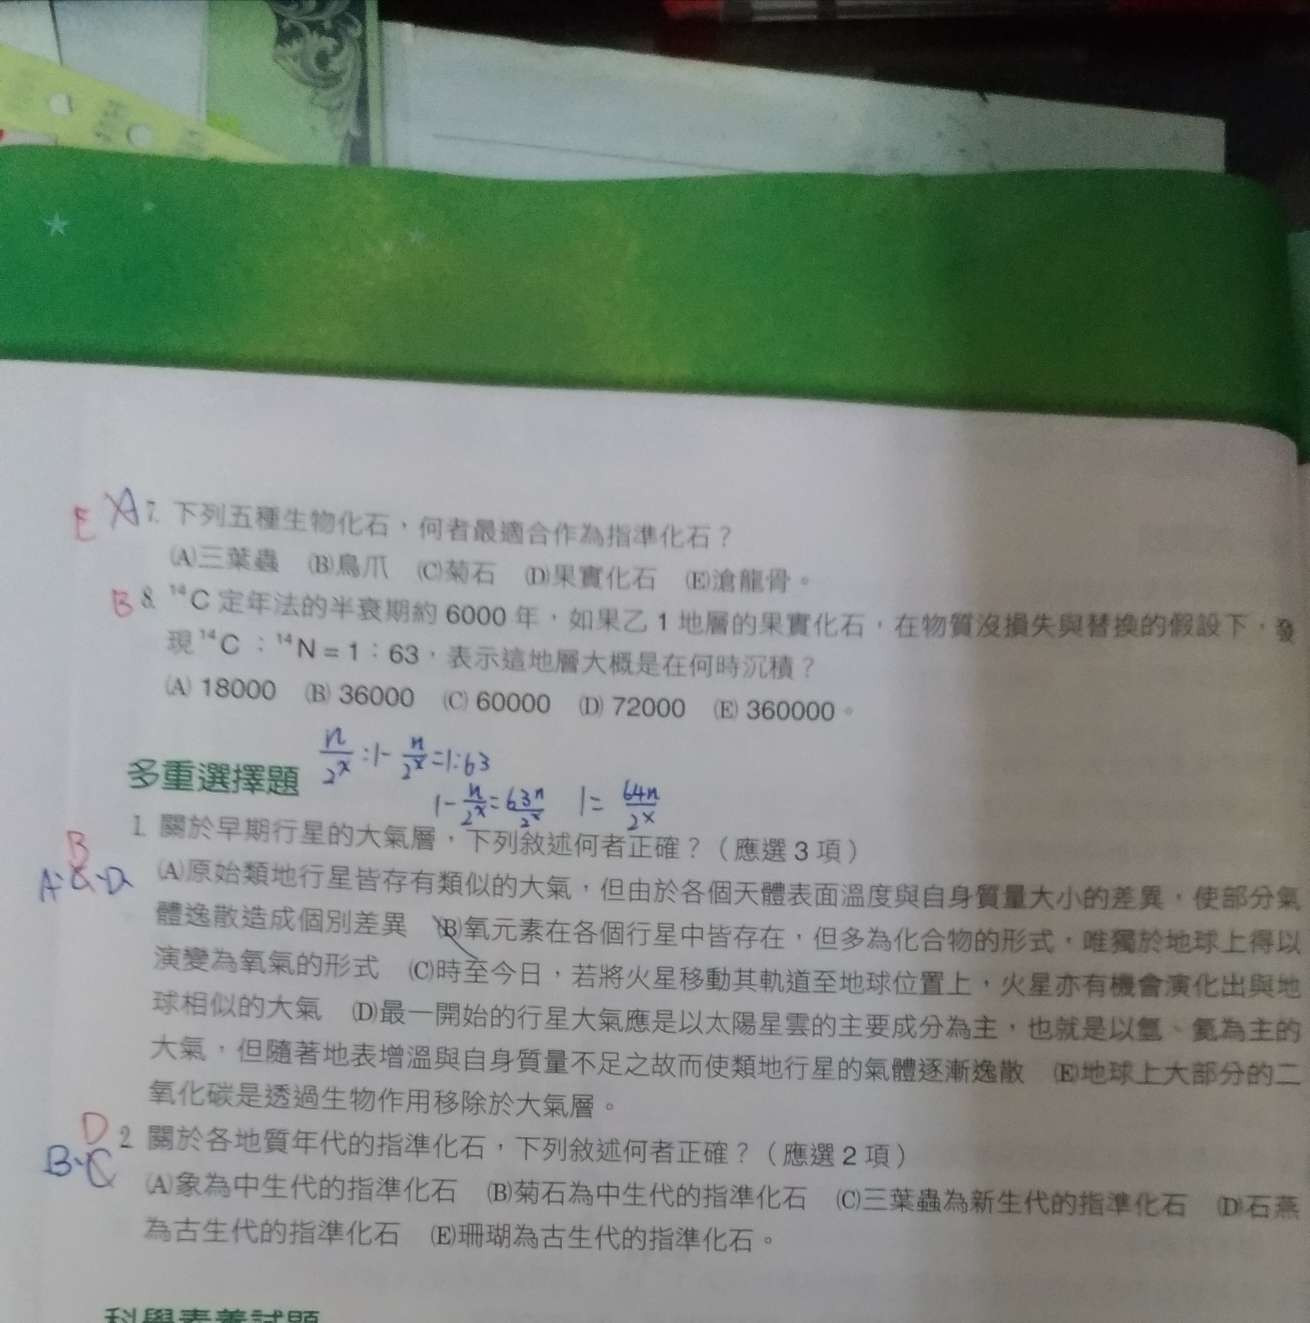 E A 7. 下列五種生物化石，何者最適合作為指準化石？
(A)三葉蟲 (B)鳥爪 (C)菊石 (D)果實化石 (E)滄龍骨。
B 8. ¹⁴C 定年法的半衰期約 6000 年，如果乙 1 地層的果實化石，在物質沒損失與替換的假設下，發
現 ¹⁴C：¹⁴N = 1：63，表示這地層大概是在何時沉積？
(A) 18000 (B) 36000 (C) 60000 (D) 72000 (E) 360000。
n/2ˣ : 1 - n/2ˣ = 1:63
1 - n/2ˣ = 63n/2ˣ 1 = 64n/2ˣ
多重選擇題
1. 關於早期行星的大氣層，下列敘述何者正確？（應選 3 項）
B
A、C、D
(A)原始類地行星皆存有類似的大氣，但由於各個天體表面溫度與自身質量大小的差異，使部分氣
體逸散造成個別差異 (B)氧元素在各個行星中皆存在，但多為化合物的形式，唯獨於地球上得以
演變為氧氣的形式 (C)時至今日，若將火星移動其軌道至地球位置上，火星亦有機會演化出與地
球相似的大氣 (D)最一開始的行星大氣應是以太陽星雲的主要成分為主，也就是以氫、氦為主的
大氣，但隨著地表增溫與自身質量不足之故而使類地行星的氣體逐漸逸散 (E)地球上大部分的二
氧化碳是透過生物作用移除於大氣層。
D
B、C
2. 關於各地質年代的指準化石，下列敘述何者正確？（應選 2 項）
(A)象為中生代的指準化石 (B)菊石為中生代的指準化石 (C)三葉蟲為新生代的指準化石 (D)石燕
為古生代的指準化石 (E)珊瑚為古生代的指準化石。
科學素養試題